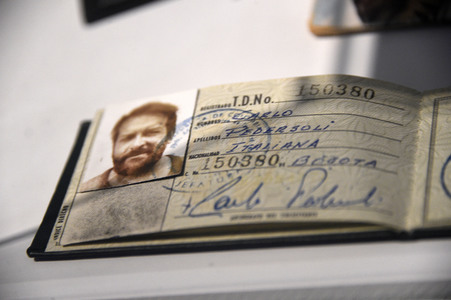 REGISTRADO T.D.No. 150380
NOMBRES CARLO
APELLIDOS PEDERSOLI
NACIONALIDAD ITALIANA
C. No. 150380 BOGOTA
Carlo Pedersoli
INDICE DERECHO